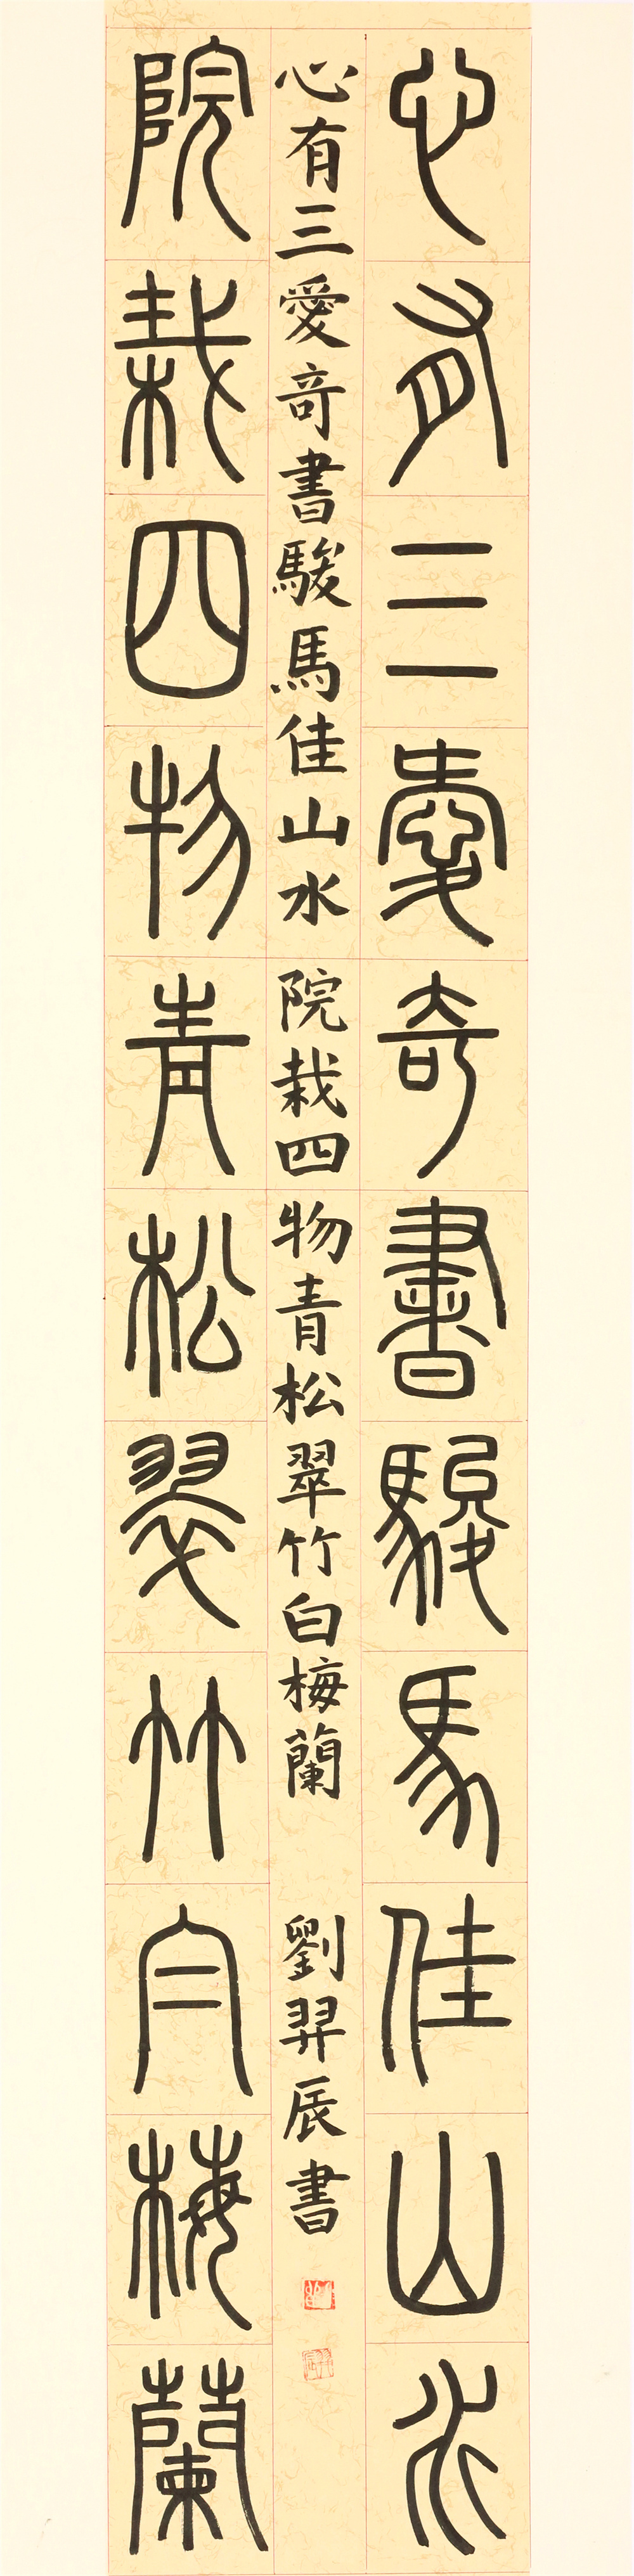 心有三愛奇書駿馬佳山水
心有三愛奇書駿馬佳山水院栽四物青松翠竹白梅蘭
劉羿辰書
院栽四物青松翠竹白梅蘭